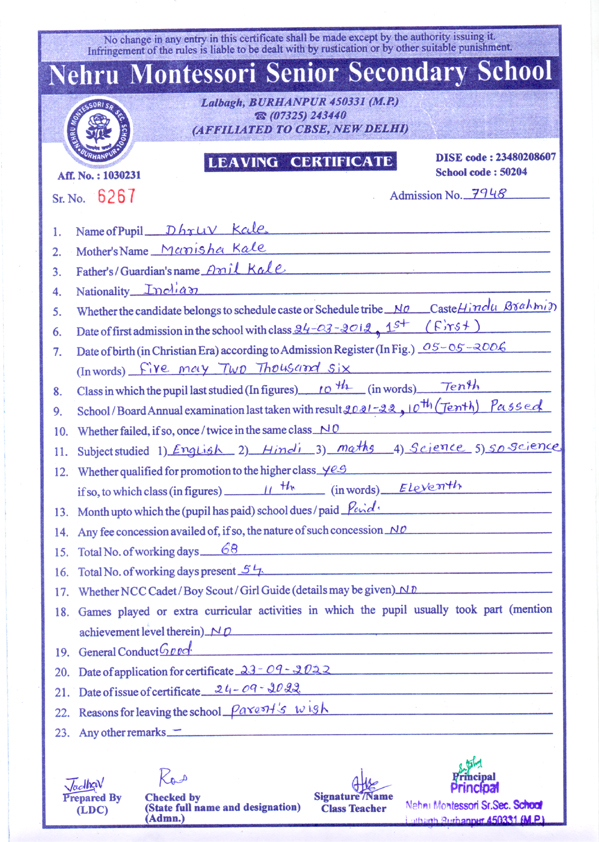 No change in any entry in this certificate shall be made except by the authority issuing it.
Infringement of the rules is liable to be dealt with by rustication or by other suitable punishment.
Nehru Montessori Senior Secondary School
Lalbagh, BURHANPUR 450331 (M.P.)
☎ (07325) 243440
(AFFILIATED TO CBSE, NEW DELHI)
NEHRU MONTESSORI SR. SEC. SCHOOL
BURHANPUR
LEAVING CERTIFICATE
DISE code : 23480208607
School code : 50204
Aff. No. : 1030231
Sr. No. 6267
Admission No. 7948
1. Name of Pupil Dhruv Kale.
2. Mother's Name Manisha Kale
3. Father's / Guardian's name Anil Kale
4. Nationality Indian
5. Whether the candidate belongs to schedule caste or Schedule tribe NO Caste Hindu Brahmin
6. Date of first admission in the school with class 24-03-2012, 1st (First)
7. Date of birth (in Christian Era) according to Admission Register (In Fig.) 05-05-2006
(In words) Five may Two Thousand six
8. Class in which the pupil last studied (In figures) 10th (in words) Tenth
9. School / Board Annual examination last taken with result 2021-22, 10th (Tenth) Passed
10. Whether failed, if so, once / twice in the same class NO
11. Subject studied 1) English 2) Hindi 3) maths 4) Science 5) so science
12. Whether qualified for promotion to the higher class yes
if so, to which class (in figures) 11th (in words) Eleventh
13. Month upto which the (pupil has paid) school dues / paid Paid.
14. Any fee concession availed of, if so, the nature of such concession NO
15. Total No. of working days 68
16. Total No. of working days present 54
17. Whether NCC Cadet / Boy Scout / Girl Guide (details may be given) NO
18. Games played or extra curricular activities in which the pupil usually took part (mention
achievement level therein) NO
19. General Conduct Good
20. Date of application for certificate 23-09-2022
21. Date of issue of certificate 24-09-2022
22. Reasons for leaving the school Parent's wish
23. Any other remarks —
Jadhav
Prepared By
(LDC)
Checked by
(State full name and designation)
(Admn.)
Signature /Name
Class Teacher
Principal
Principal
Nehru Montessori Sr.Sec. School
Lalbagh Burhanpur 450331 (M.P.)